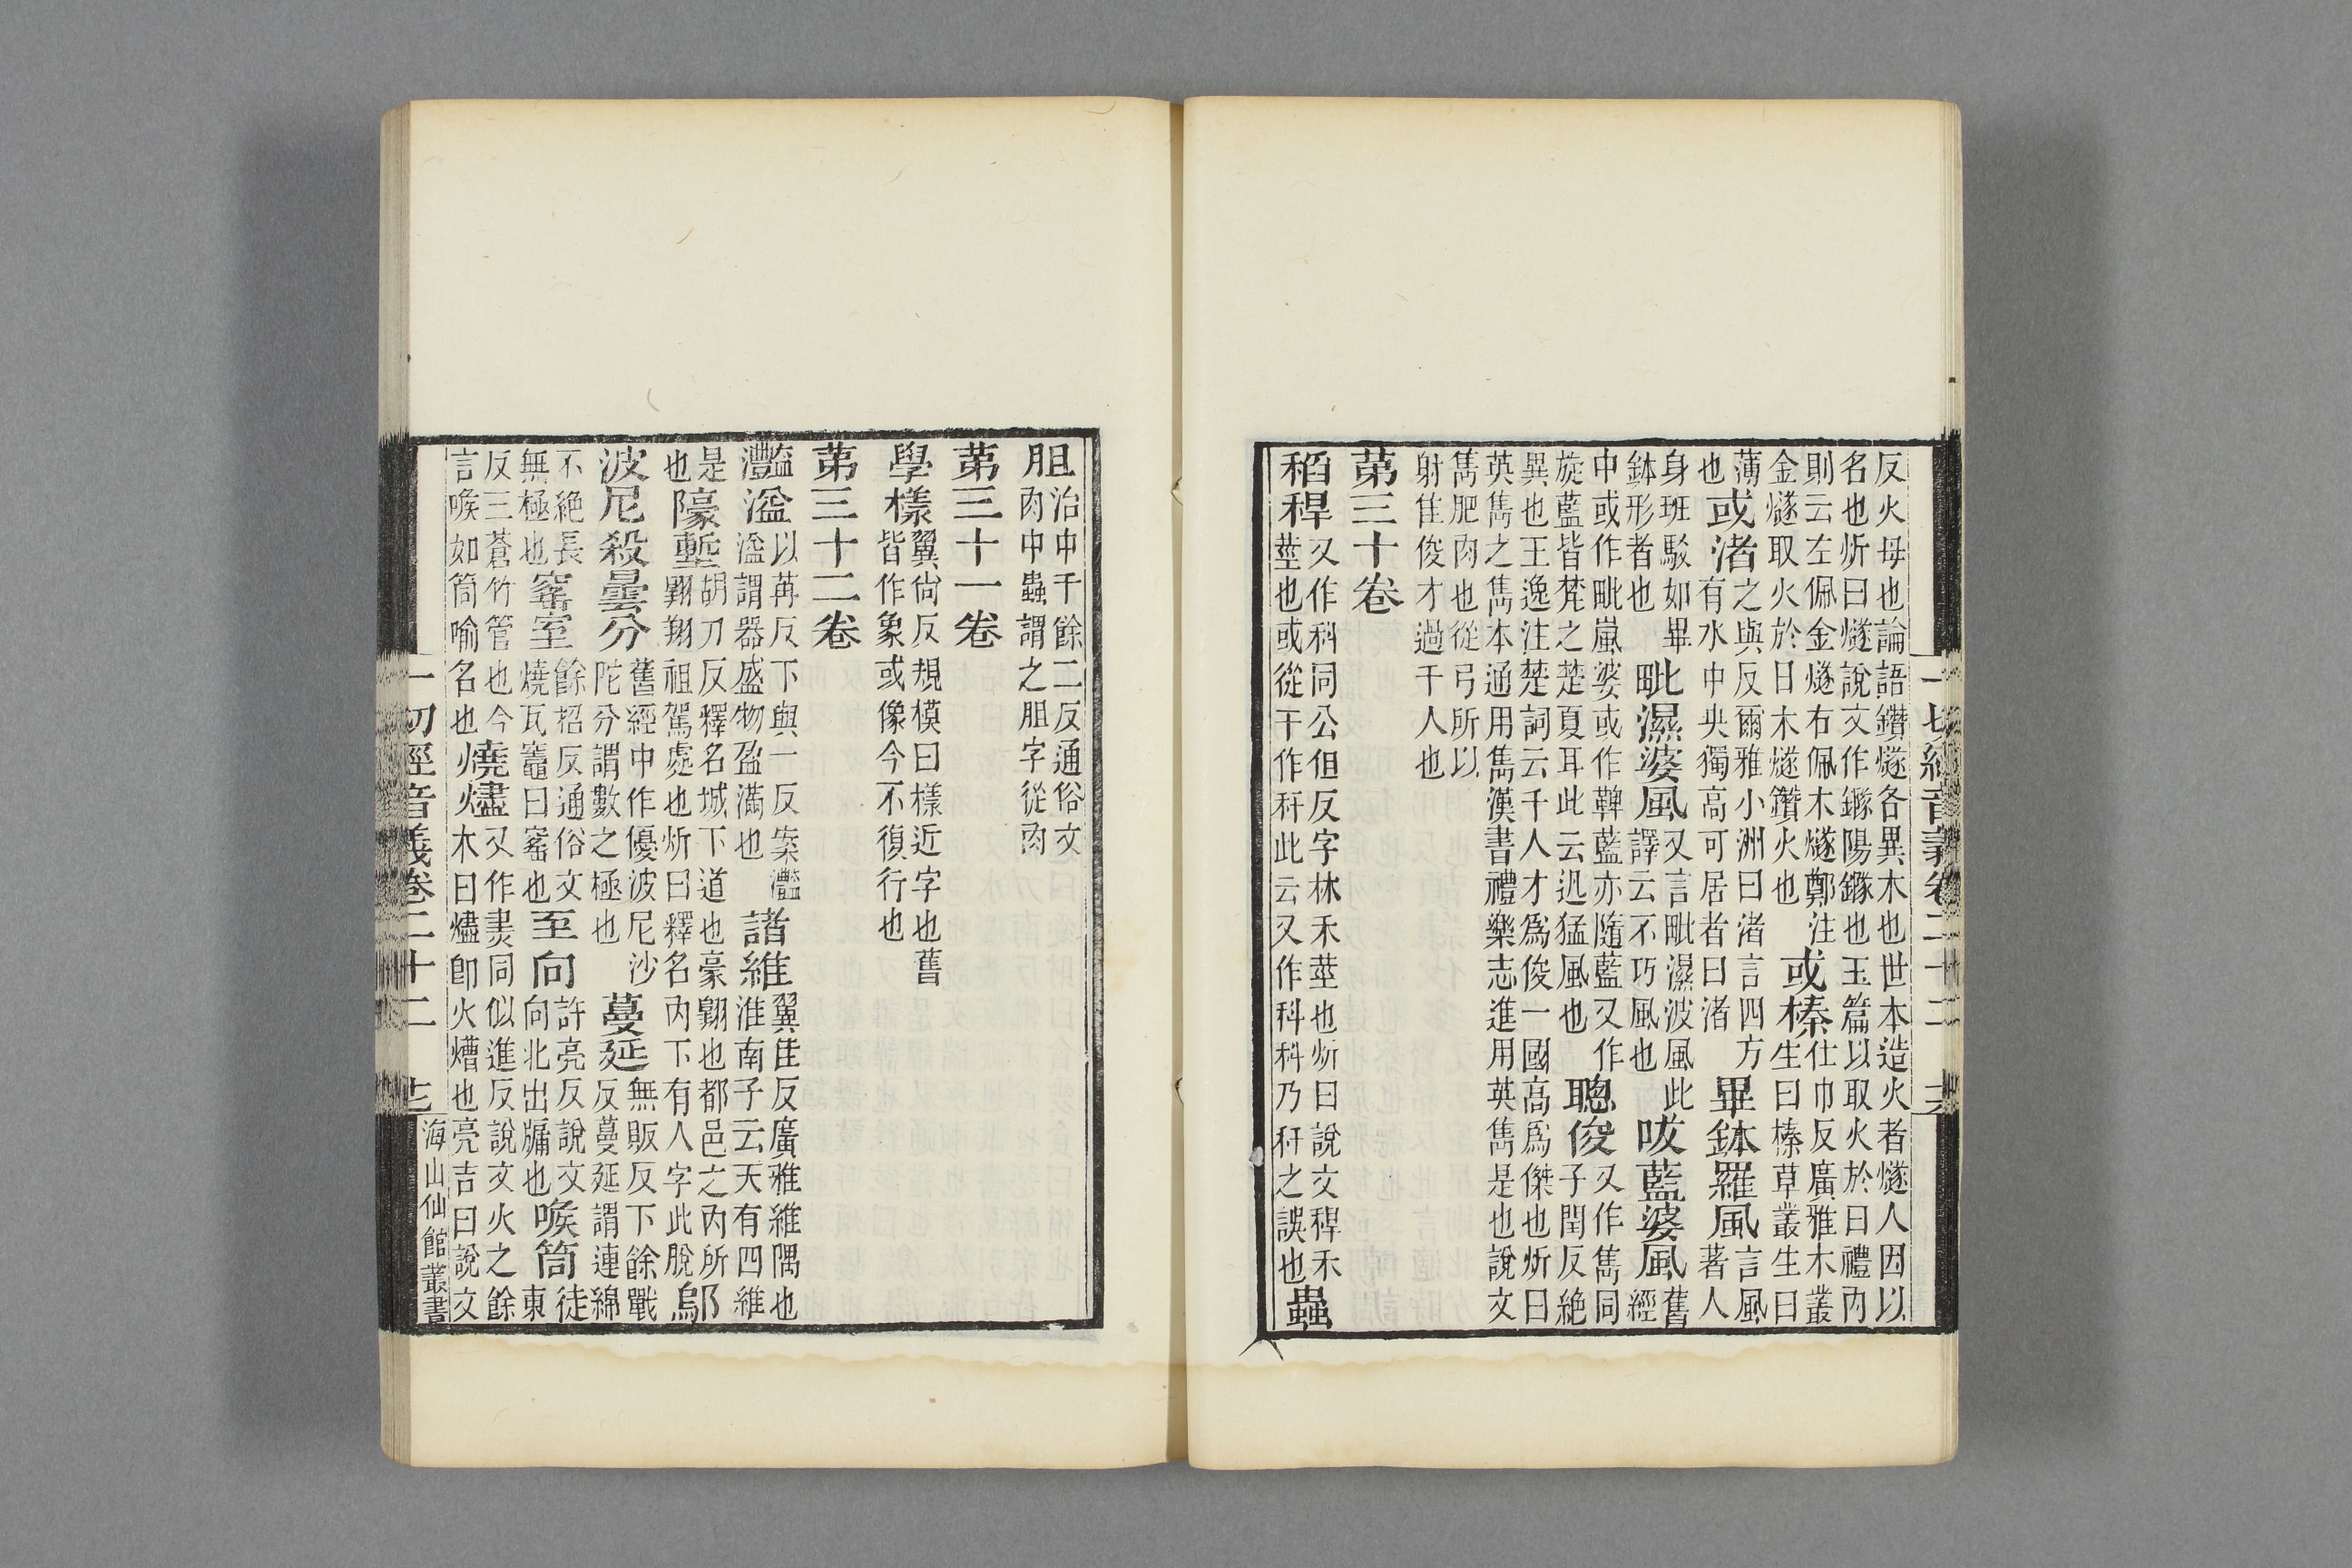 一切經音義卷二十二
反火母也論語鑽燧各異木也世本造火者燧人因以名也炘曰燧說文作鐆陽鐆也玉篇以取火於日禮內
則云左佩金燧右佩木燧鄭注金燧取火於日木燧鑽火也或榛仕巾反廣雅木叢生曰榛草叢生曰
薄也或渚之與反爾雅小洲曰渚言四方有水中央獨高可居者曰渚畢鉢羅風言風著人
身班駁如畢鉢形者也毗濕婆風又言毗濕波風此譯云不巧風也吠藍婆風舊經
中或作毗嵐婆或作鞞藍亦隨藍又作旋藍皆梵之楚夏耳此云迅猛風也聰俊又作雋同子閏反絕
異也王逸注楚詞云千人才爲俊一國高爲傑也炘曰英雋之雋本通用雋漢書禮樂志進用英雋是也說文
雋肥肉也從弓所以射隹俊才過千人也
第三十卷
稻稈又作科同公但反字林禾莖也炘曰說文稈禾莖也或從干作秆此云又作科科乃秆之誤也蟲
胆治中千餘二反通俗文肉中蟲謂之胆字從肉
第三十一卷
學樣翼尙反規模曰樣近字也舊皆作象或像今不復行也
第三十二卷
灩溢以苒反下與一反案灩溢謂器盛物盈滿也諸維翼隹反廣雅維隅也淮南子云天有四維
是也隍塹胡刀反釋名城下道也豪翺也都邑之內所翺翔祖駕處也炘曰釋名內下有人字此脫鄔
波尼殺曇分舊經中作優波尼沙陀分謂數之極也蔓延無販反下餘戰反蔓延謂連綿
不絕長無極也窰室餘招反通俗文燒瓦竈曰窰也至向許亮反說文向北出牖也喉筒徒東
反三蒼竹管也今言喉如筒喻名也燒燼又作㶳同似進反說文火之餘木曰燼卽火㷮也亮吉曰說文
一切經音義卷二十二
海山仙館叢書